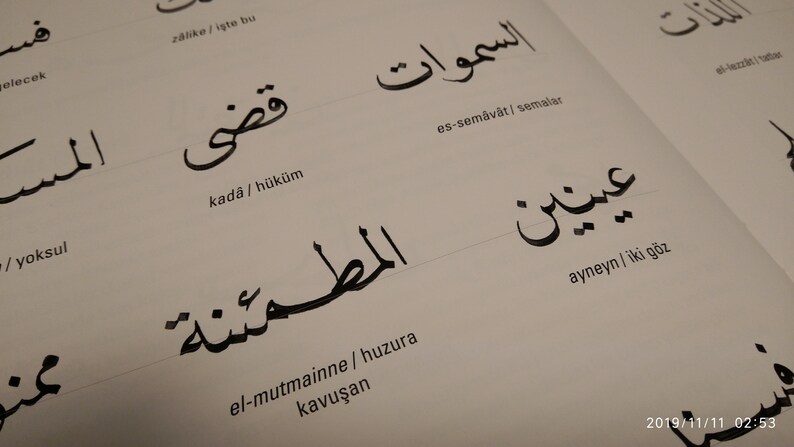 zâlike / işte bu
gelecek
السموات
es-semâvât / semalar
اللذات
el-lezzât / tatlar
قضى
kadâ / hüküm
/ yoksul
عينين
ayneyn / iki göz
المطمئنة
el-mutmainne / huzura
kavuşan
2019/11/11 02:53